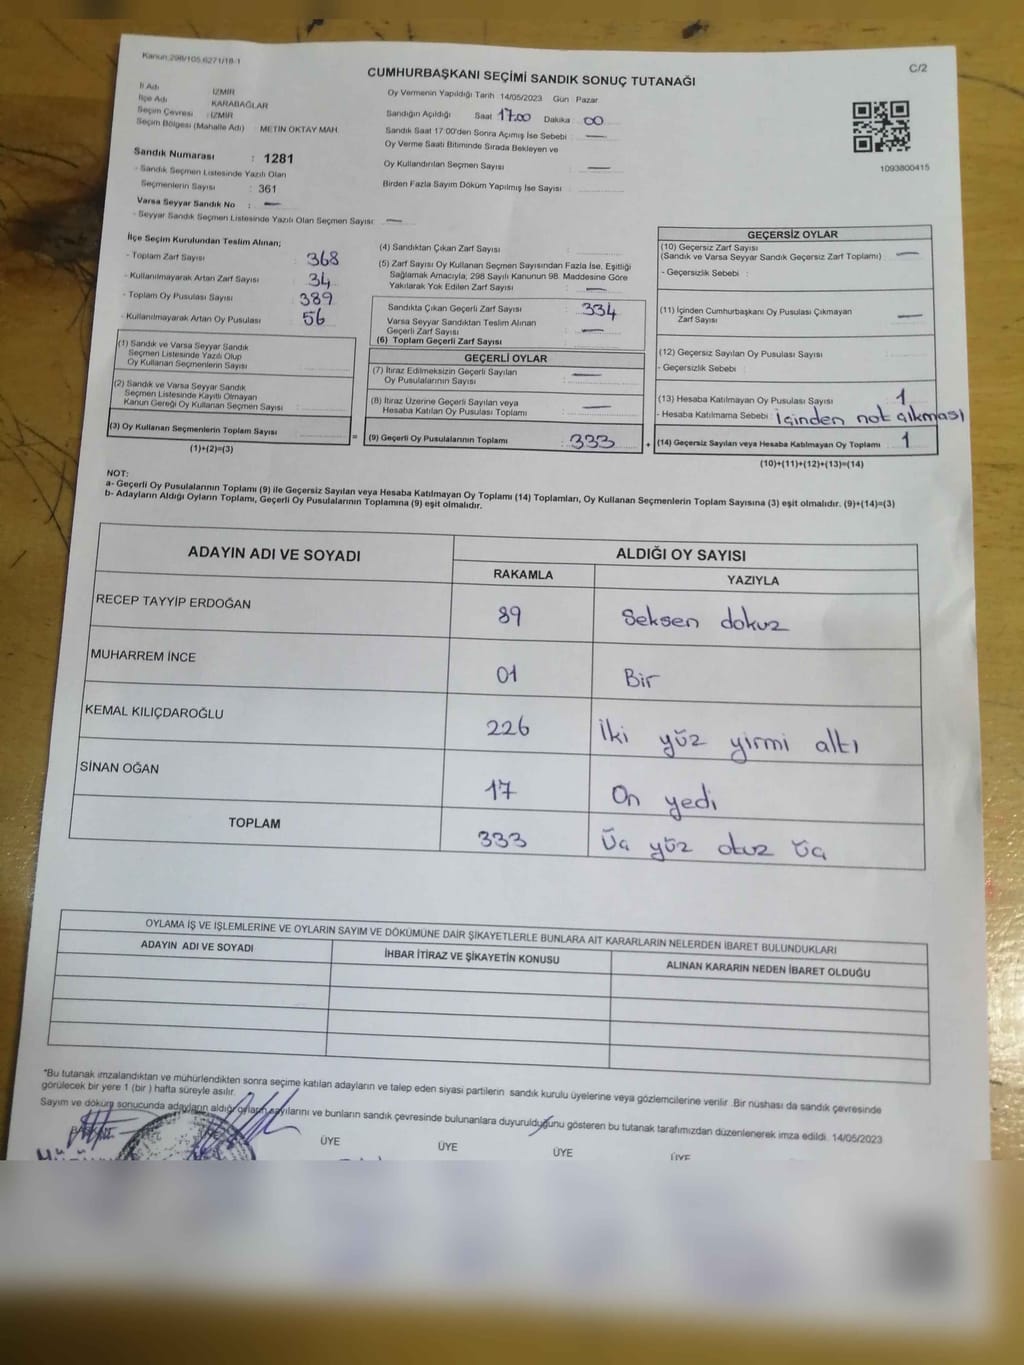 Kanun:298/105.6271/18-1
C/2
CUMHURBAŞKANI SEÇİMİ SANDIK SONUÇ TUTANAĞI
İl Adı : İZMİR
İlçe Adı : KARABAĞLAR
Seçim Çevresi : İZMİR
Seçim Bölgesi (Mahalle Adı) METİN OKTAY MAH.
Sandık Numarası : 1281
- Sandık Seçmen Listesinde Yazılı Olan
Seçmenlerin Sayısı : 361
Varsa Seyyar Sandık No : —
- Seyyar Sandık Seçmen Listesinde Yazılı Olan Seçmen Sayısı: —
Oy Vermenin Yapıldığı Tarih 14/05/2023 Gün : Pazar
Sandığın Açıldığı Saat 17.00 Dakika : 00
Sandık Saat 17:00'den Sonra Açımış İse Sebebi : —
Oy Verme Saati Bitiminde Sırada Bekleyen ve
Oy Kullandırılan Seçmen Sayısı : —
Birden Fazla Sayım Döküm Yapılmış İse Sayısı :
1093800415
İlçe Seçim Kurulundan Teslim Alınan;
- Toplam Zarf Sayısı : 368
- Kullanılmayarak Artan Zarf Sayısı : 34
- Toplam Oy Pusulası Sayısı : 389
- Kullanılmayarak Artan Oy Pusulası : 56
(1) Sandık ve Varsa Seyyar Sandık
Seçmen Listesinde Yazılı Olup
Oy Kullanan Seçmenlerin Sayısı :
(2) Sandık ve Varsa Seyyar Sandık
Seçmen Listesinde Kayıtlı Olmayan
Kanun Gereği Oy Kullanan Seçmen Sayısı :
(3) Oy Kullanan Seçmenlerin Toplam Sayısı :
(1)+(2)=(3)
(4) Sandıktan Çıkan Zarf Sayısı :
(5) Zarf Sayısı Oy Kullanan Seçmen Sayısından Fazla İse, Eşitliği
Sağlamak Amacıyla, 298 Sayılı Kanunun 98. Maddesine Göre
Yakılarak Yok Edilen Zarf Sayısı : —
Sandıkta Çıkan Geçerli Zarf Sayısı : 334
Varsa Seyyar Sandıktan Teslim Alınan
Geçerli Zarf Sayısı : —
(6) Toplam Geçerli Zarf Sayısı :
GEÇERLİ OYLAR
(7) İtiraz Edilmeksizin Geçerli Sayılan
Oy Pusulalarının Sayısı : —
(8) İtiraz Üzerine Geçerli Sayılan veya
Hesaba Katılan Oy Pusulası Toplamı : —
= (9) Geçerli Oy Pusulalarının Toplamı : 333
GEÇERSİZ OYLAR
(10) Geçersiz Zarf Sayısı
(Sandık ve Varsa Seyyar Sandık Geçersiz Zarf Toplamı) : —
- Geçersizlik Sebebi :
(11) İçinden Cumhurbaşkanı Oy Pusulası Çıkmayan
Zarf Sayısı : —
(12) Geçersiz Sayılan Oy Pusulası Sayısı :
- Geçersizlik Sebebi :
(13) Hesaba Katılmayan Oy Pusulası Sayısı : 1
- Hesaba Katılmama Sebebi : İçinden not çıkması
+ (14) Geçersiz Sayılan veya Hesaba Katılmayan Oy Toplamı : 1
(10)+(11)+(12)+(13)=(14)
NOT:
a- Geçerli Oy Pusulalarının Toplamı (9) ile Geçersiz Sayılan veya Hesaba Katılmayan Oy Toplamı (14) Toplamları, Oy Kullanan Seçmenlerin Toplam Sayısına (3) eşit olmalıdır. (9)+(14)=(3)
b- Adayların Aldığı Oyların Toplamı, Geçerli Oy Pusulalarının Toplamına (9) eşit olmalıdır.
ADAYIN ADI VE SOYADI ALDIĞI OY SAYISI
RAKAMLA YAZIYLA
RECEP TAYYİP ERDOĞAN 89 Seksen dokuz
MUHARREM İNCE 01 Bir
KEMAL KILIÇDAROĞLU 226 İki yüz yirmi altı
SİNAN OĞAN 17 On yedi
TOPLAM 333 Üç yüz otuz üç
OYLAMA İŞ VE İŞLEMLERİNE VE OYLARIN SAYIM VE DÖKÜMÜNE DAİR ŞİKAYETLERLE BUNLARA AİT KARARLARIN NELERDEN İBARET BULUNDUKLARI
ADAYIN ADI VE SOYADI İHBAR İTİRAZ VE ŞİKAYETİN KONUSU ALINAN KARARIN NEDEN İBARET OLDUĞU
*Bu tutanak imzalandıktan ve mühürlendikten sonra seçime katılan adayların ve talep eden siyasi partilerin sandık kurulu üyelerine veya gözlemcilerine verilir. Bir nüshası da sandık çevresinde
görülecek bir yere 1 (bir) hafta süreyle asılır.
Sayım ve döküm sonucunda adayların aldığı oyların sayılarını ve bunların sandık çevresinde bulunanlara duyurulduğunu gösteren bu tutanak tarafımızdan düzenlenerek imza edildi. 14/05/2023
BAŞKAN ÜYE ÜYE ÜYE ÜYE